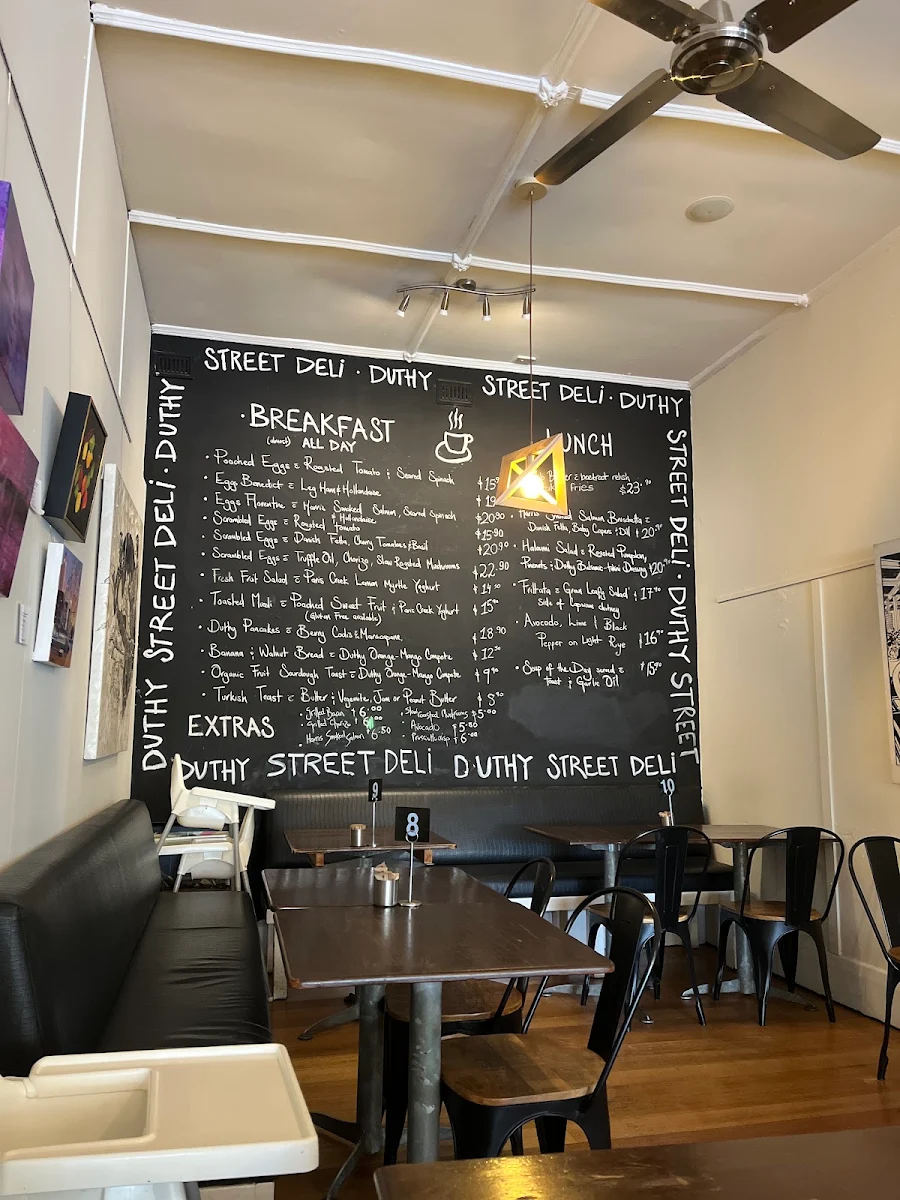 STREET DELI · DUTHY STREET DELI · DUTHY
DUTHY STREET DELI · DUTHY
STREET DELI · DUTHY STREET
· BREAKFAST
(almost) ALL DAY
· Poached Eggs c Roasted Tomato & Seared Spinach
· Eggs Benedict c Leg Ham & Hollandaise
· Eggs Florentine c Harris Smoked Salmon, Seared Spinach & Hollandaise $20.90
· Scrambled Eggs c Roasted Tomato $15.90
· Scrambled Eggs c Danish Fetta, Cherry Tomatoes & Basil $20.90
· Scrambled Eggs c Truffle Oil, Chorizo, Slow Roasted Mushrooms $22.90
· Fresh Fruit Salad c Paris Creek Lemon Myrtle Yoghurt $14.50
· Toasted Muesli c Poached Sweet Fruit & Paris Creek Yoghurt
(Gluten Free available)
· Duthy Pancakes c Berry Coulis & Mascarpone $18.90
· Banana & Walnut Bread c Duthy Orange-Mango Compote
· Organic Fruit Sourdough Toast c Duthy Orange-Mango Compote
· Turkish Toast c Butter & Vegemite, Jam or Peanut Butter
EXTRAS
· Grilled Bacon $6.00
· Grilled Chorizo
Harris Smoked Salmon 6.50
· Slow Roasted Mushrooms $5.00
Avocado $5.80
· Prosciutto crisp
LUNCH
c beetroot relish
fries $23.90
Salmon Bruschetta c
Danish Fetta, Baby Capers & Dill
· Haloumi Salad c Roasted Pumpkin,
· Frittata c Green Leafy Salad $17.90
Side of
· Avocado, Lime & Black
Pepper on Light Rye
· Soup of the Day served c
Toast & Garlic Oil
DUTHY STREET DELI DUTHY STREET DELI
9
8
10